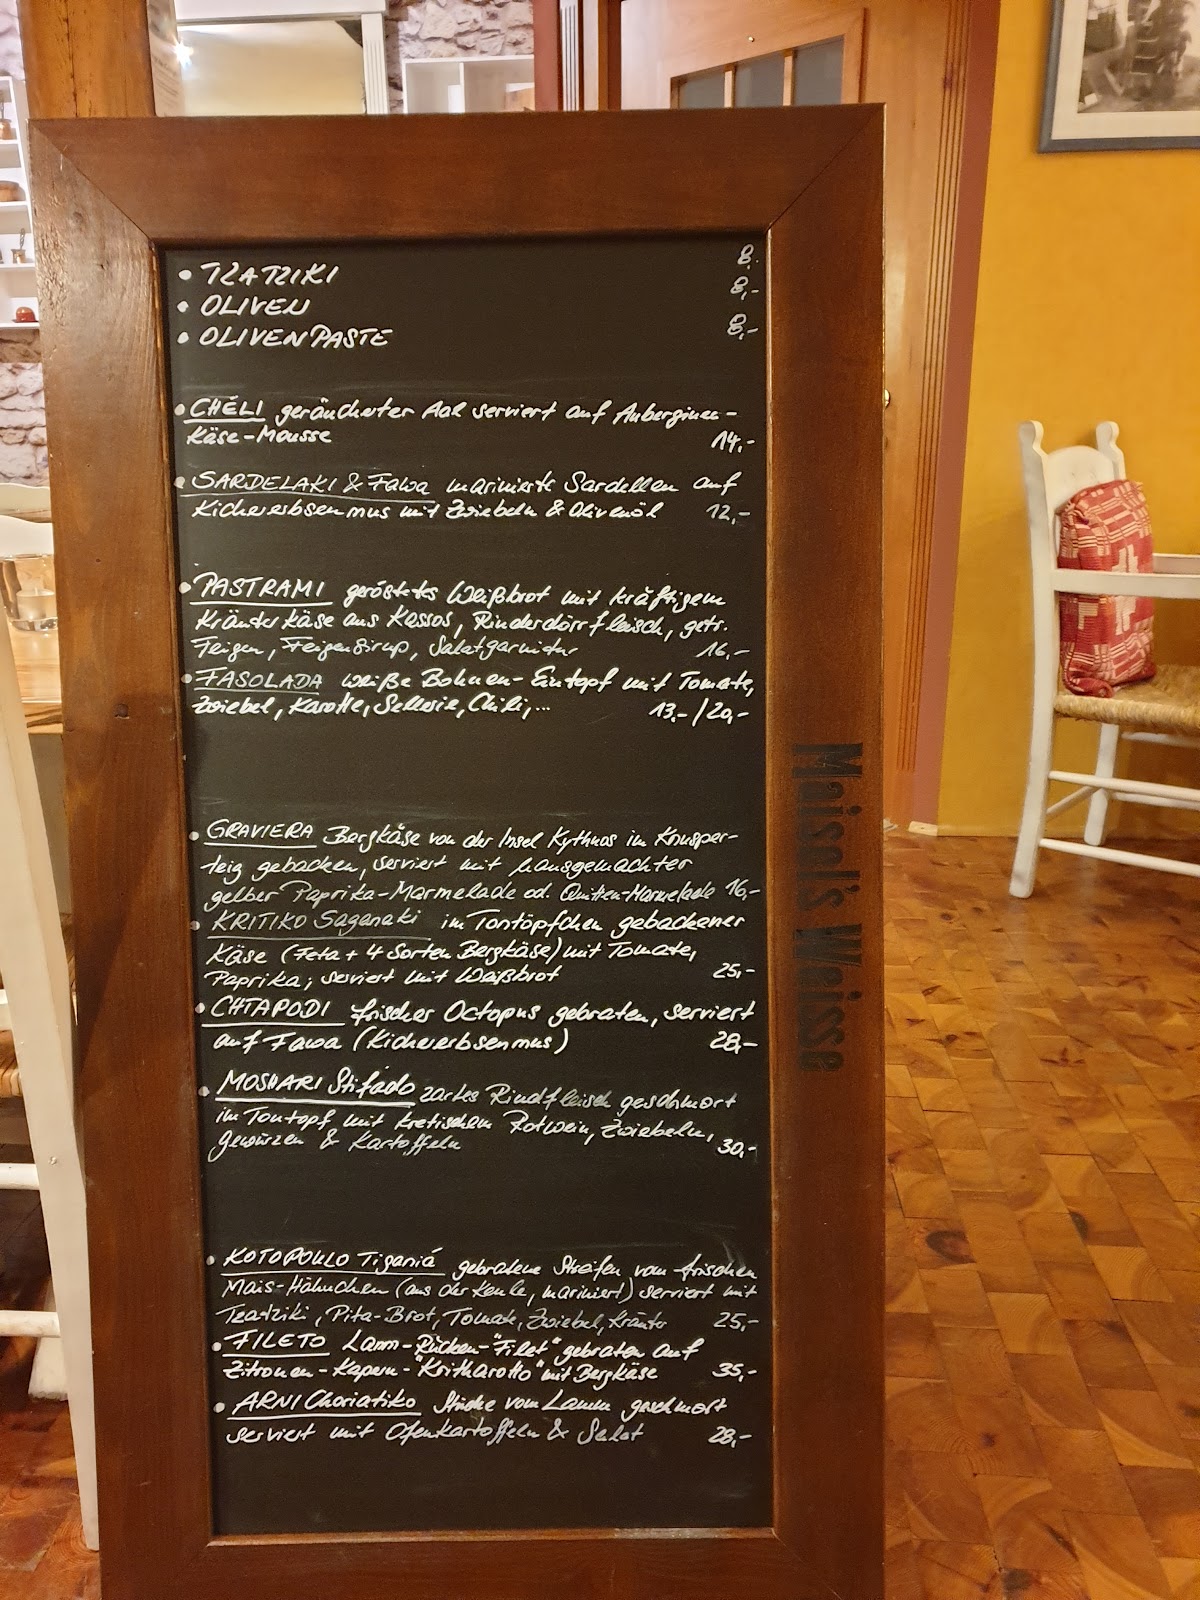 • TZATZIKI 8.
• OLIVEN 8,-
• OLIVENPASTE 8,-
• CHÉLI geräucherter Aal serviert auf Auberginen-
Käse-Mousse 14,-
• SARDELAKI & Fawa marinierte Sardellen auf
Kichererbsenmus mit Zwiebeln & Olivenöl 12,-
• PASTRAMI geröstetes Weißbrot mit kräftigem
Kräuterkäse aus Kassos, Rinderdörrfleisch, getr.
Feigen, Feigensirup, Salatgarnitur 16,-
• FASOLADA weiße Bohnen-Eintopf mit Tomate,
Zwiebel, Karotte, Sellerie, Chili,... 13,-/20,-
• GRAVIERA Bergkäse von der Insel Kythnos im Knusper-
teig gebacken, serviert mit hausgemachter
gelber Paprika-Marmelade od. Quitten-Marmelade 16,-
• KRITIKO Saganaki im Tontöpfchen gebackener
Käse (Feta + 4 Sorten Bergkäse) mit Tomate,
Paprika; serviert mit Weißbrot 25,-
• CHTAPODI frischer Octopus gebraten, serviert
auf Fawa (Kichererbsenmus) 28,-
• MOSHARI Stifado zartes Rindfleisch geschmort
im Tontopf mit kretischem Rotwein, Zwiebeln,
Gewürzen & Kartoffeln 30,-
• KOTOPOULO Tiganiá gebratene Streifen vom frischen
Mais-Hähnchen (aus der Keule, mariniert) serviert mit
Tzatziki, Pita-Brot, Tomate, Zwiebel, Kräuter 25,-
• FILETO Lamm-Rücken-"Filet" gebraten auf
Zitronen-Kapern-"Kritharotto" mit Bergkäse 35,-
• ARNI Choriatiko Stücke vom Lamm geschmort
serviert mit Ofenkartoffeln & Salat 28,-
Maisel's Weisse